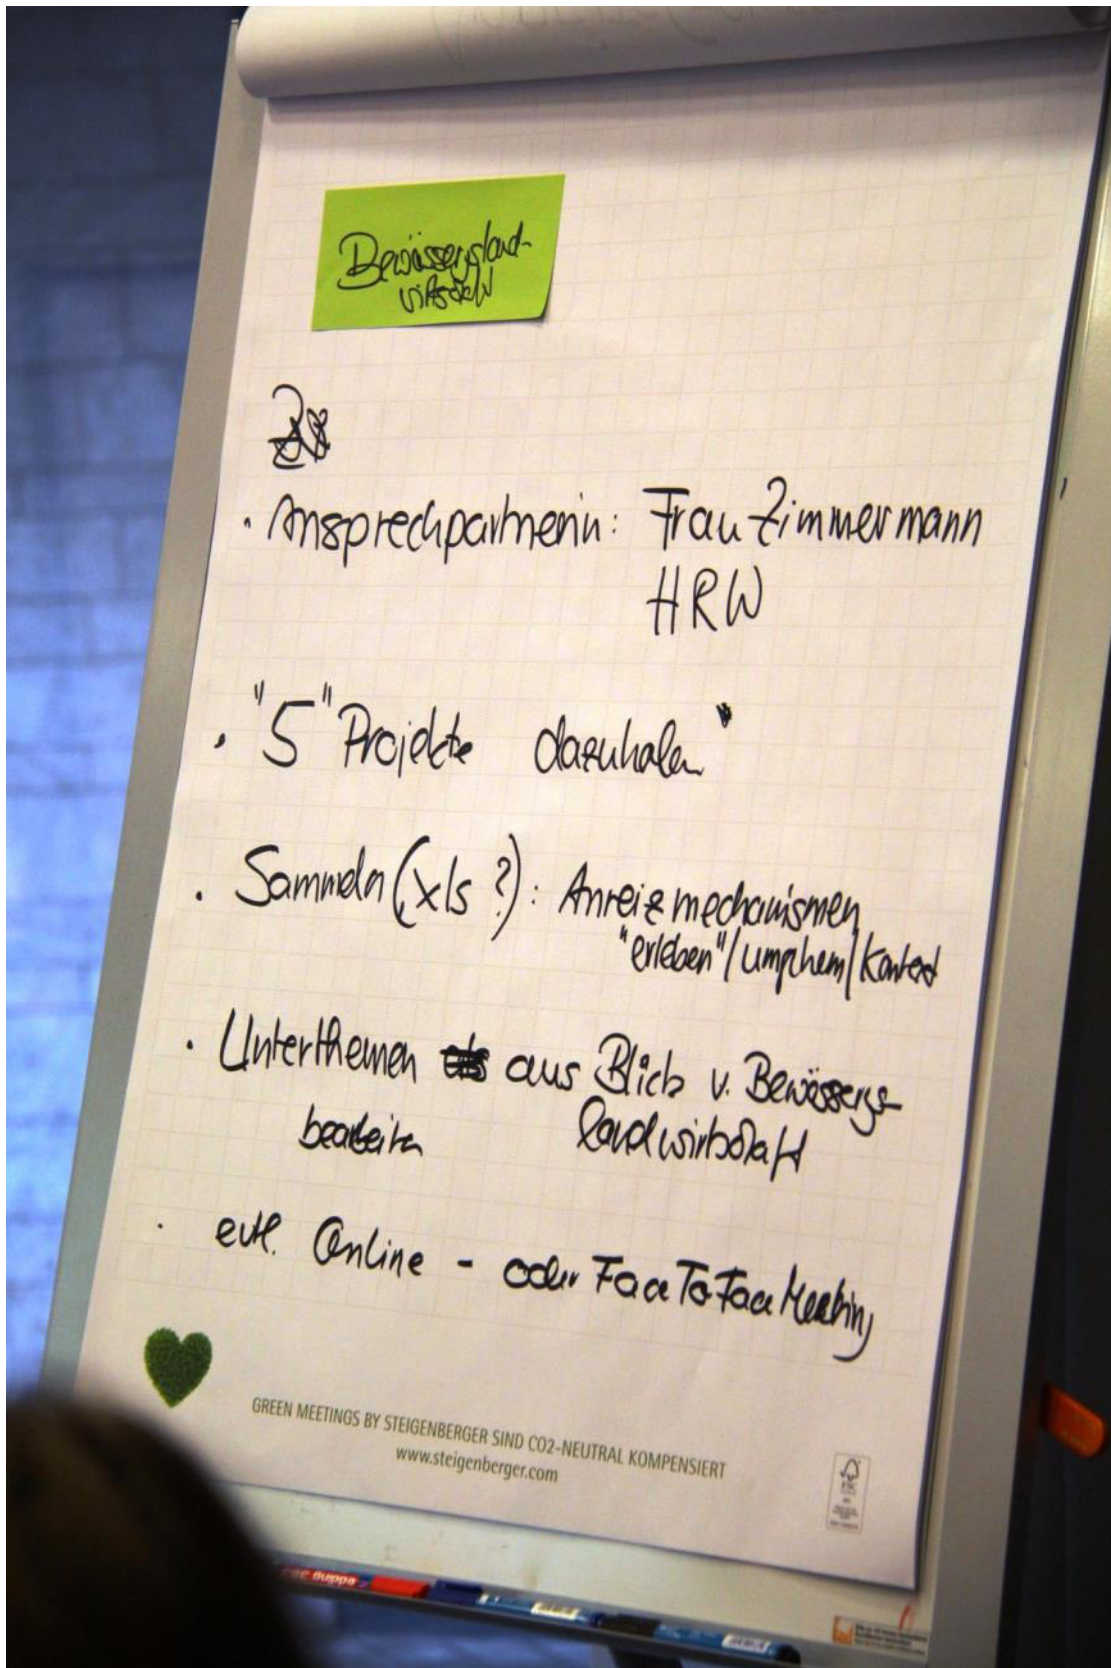 Bewässergsland-
wirtschaft
• Ansprechpartnerin: Frau Zimmermann
HRW
• "5" Projekte dazuholen"
• Sammeln (xls?): Anreizmechanismen
"erleben"/ /Kontext
• Unterthemen aus Blick v. Bewässergs-
bearbeiten landwirtschaft
• evtl. Online - oder FaceToFace Meeting
GREEN MEETINGS BY STEIGENBERGER SIND CO2-NEUTRAL KOMPENSIERT
www.steigenberger.com
FSC